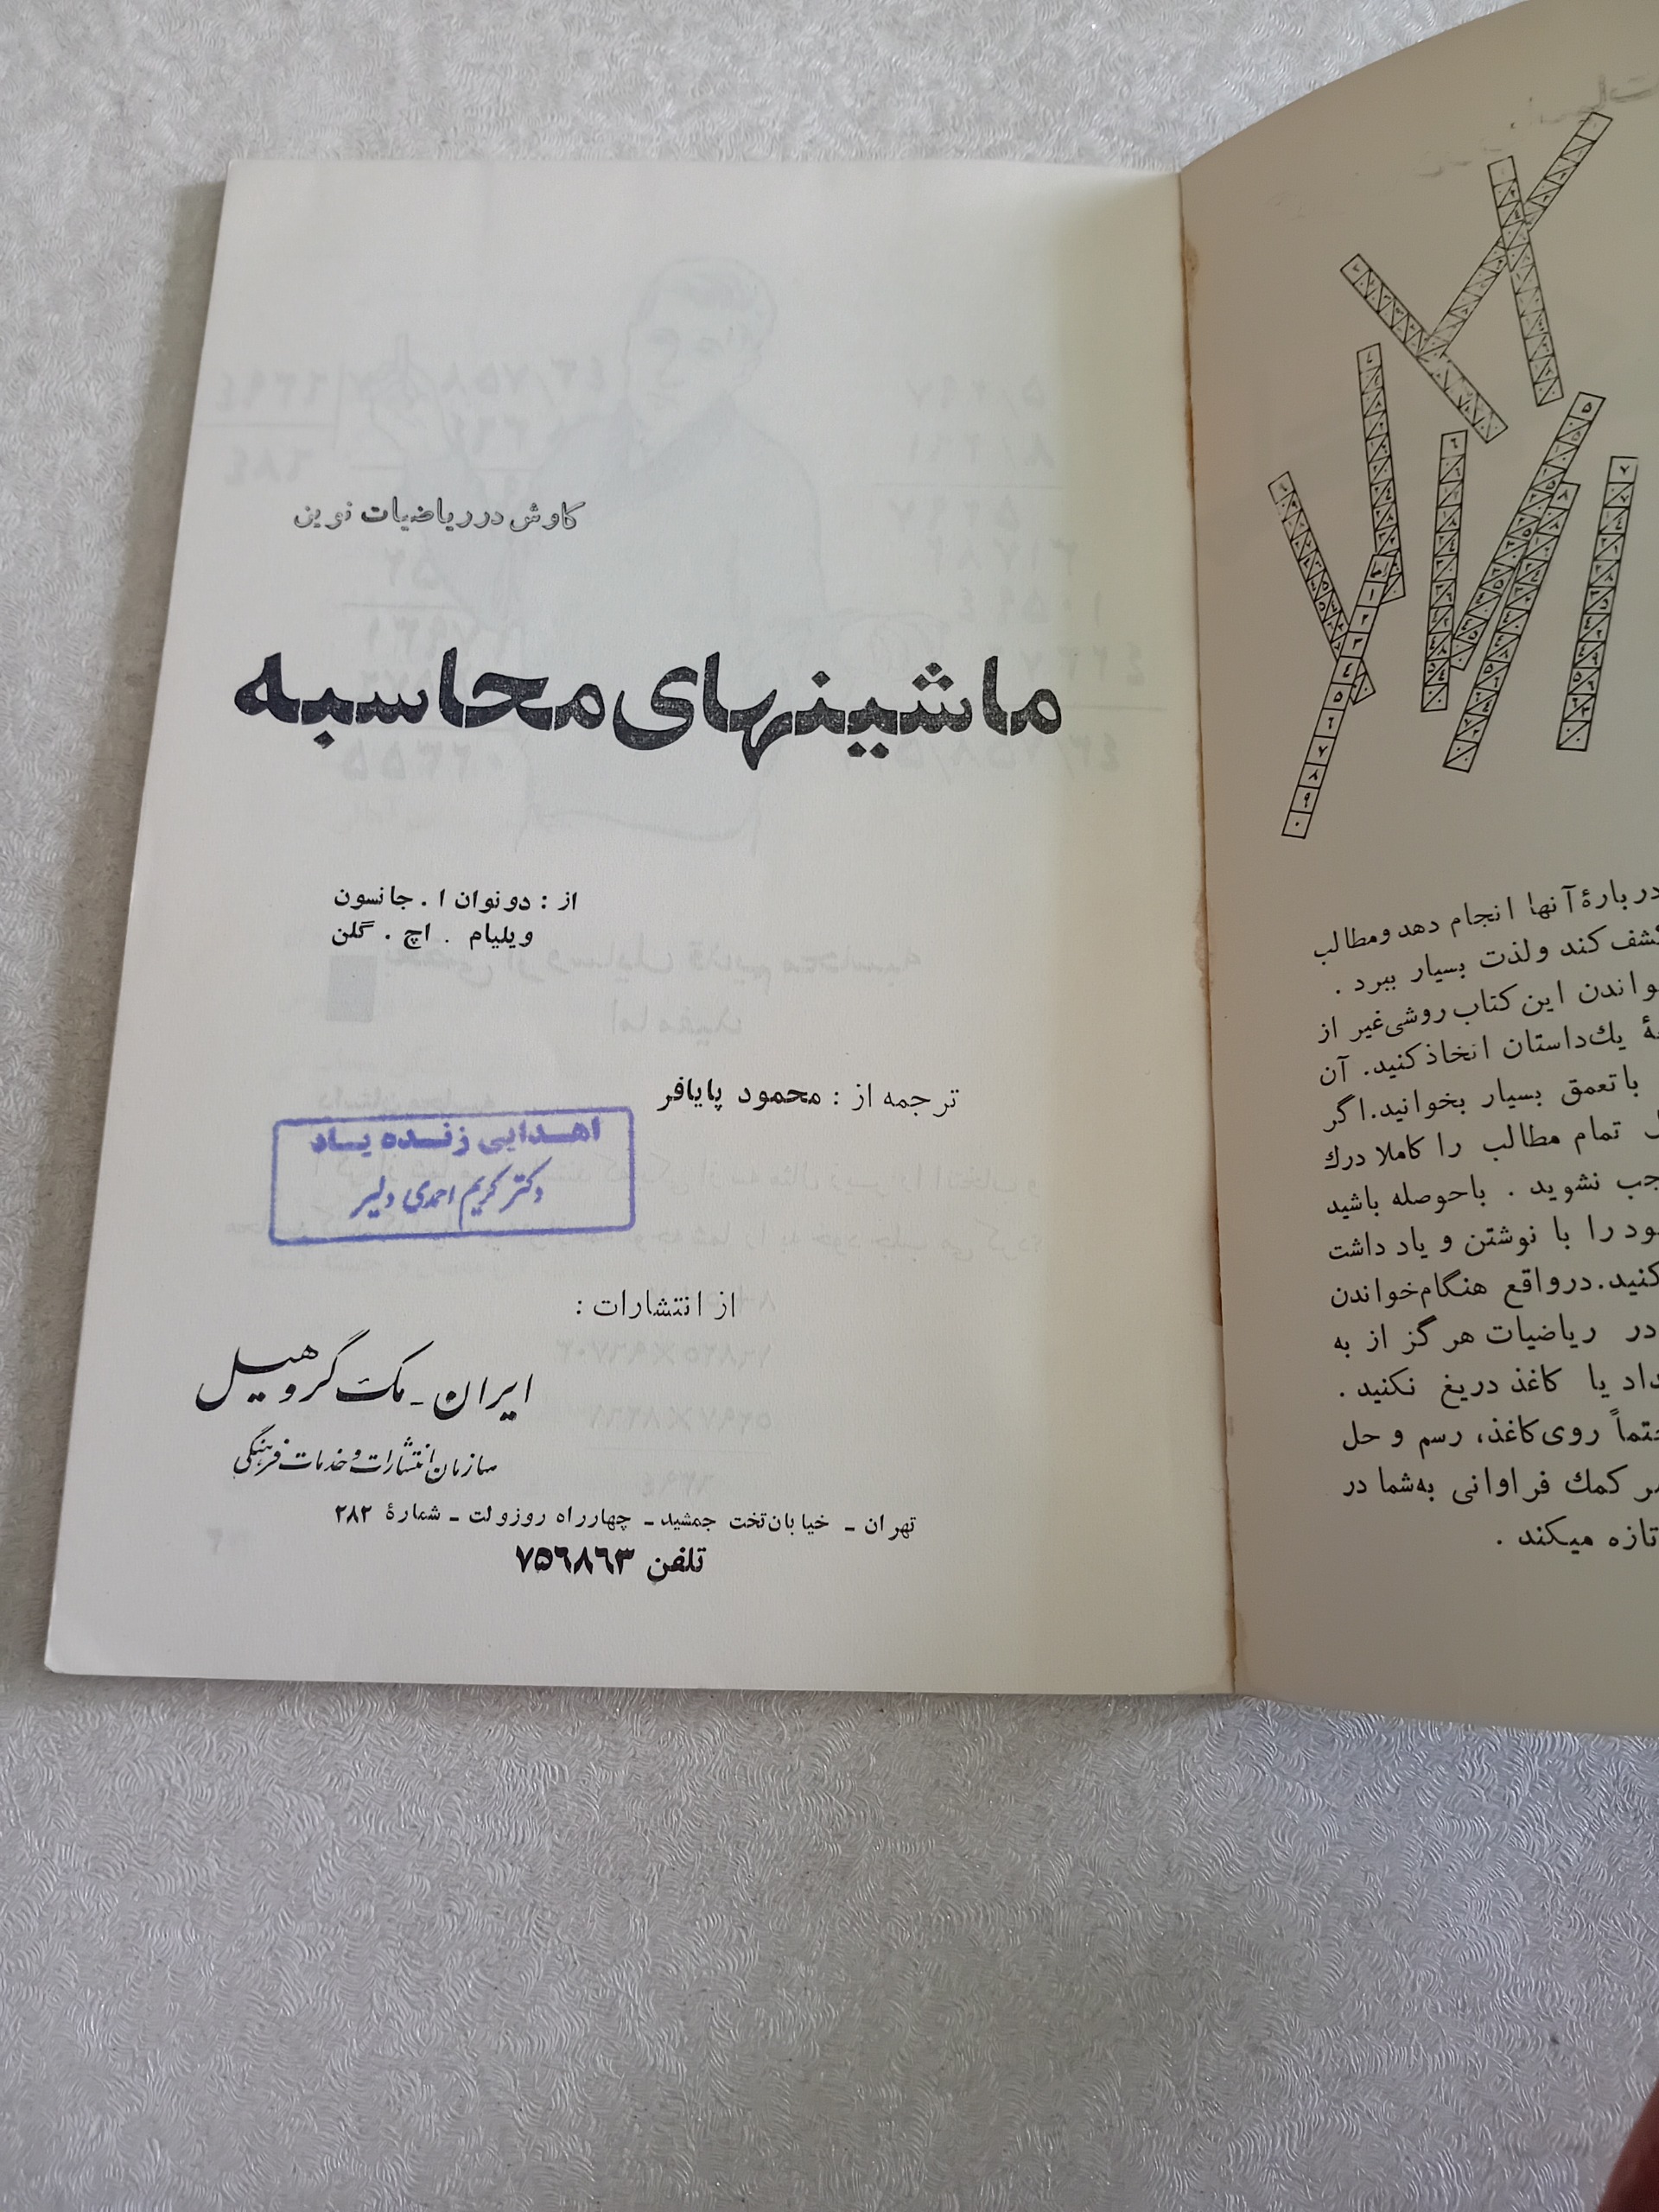 کاوش در ریاضیات نوین
ماشینهای محاسبه
از : دونوان ا . جانسون
ویلیام . اچ . گلن
ترجمه از : محمود پایافر
اهدایی زنده یاد
دکتر کریم احمدی دلیر
از انتشارات :
ایران - مک گروهیل
سازمان انتشارات و خدمات فرهنگی
تهران - خیابان تخت جمشید - چهارراه روزولت - شمارهٔ ۲۸۲
تلفن ۷۵۶۸۶۳
دربارهٔ آنها انجام دهد ومطالب
کشف کند ولذت بسیار ببرد .
اندن این کتاب روشی غیر از
یك داستان اتخاذ کنید. آن
با تعمق بسیار بخوانید. اگر
تمام مطالب را کاملا درك
نشوید . باحوصله باشید
را با نوشتن و یاد داشت
کنید. درواقع هنگام خواندن
در ریاضیات هرگز از به
یا کاغذ دریغ نکنید .
روی کاغذ، رسم و حل
کمك فراوانی به شما در
تازه میکند .